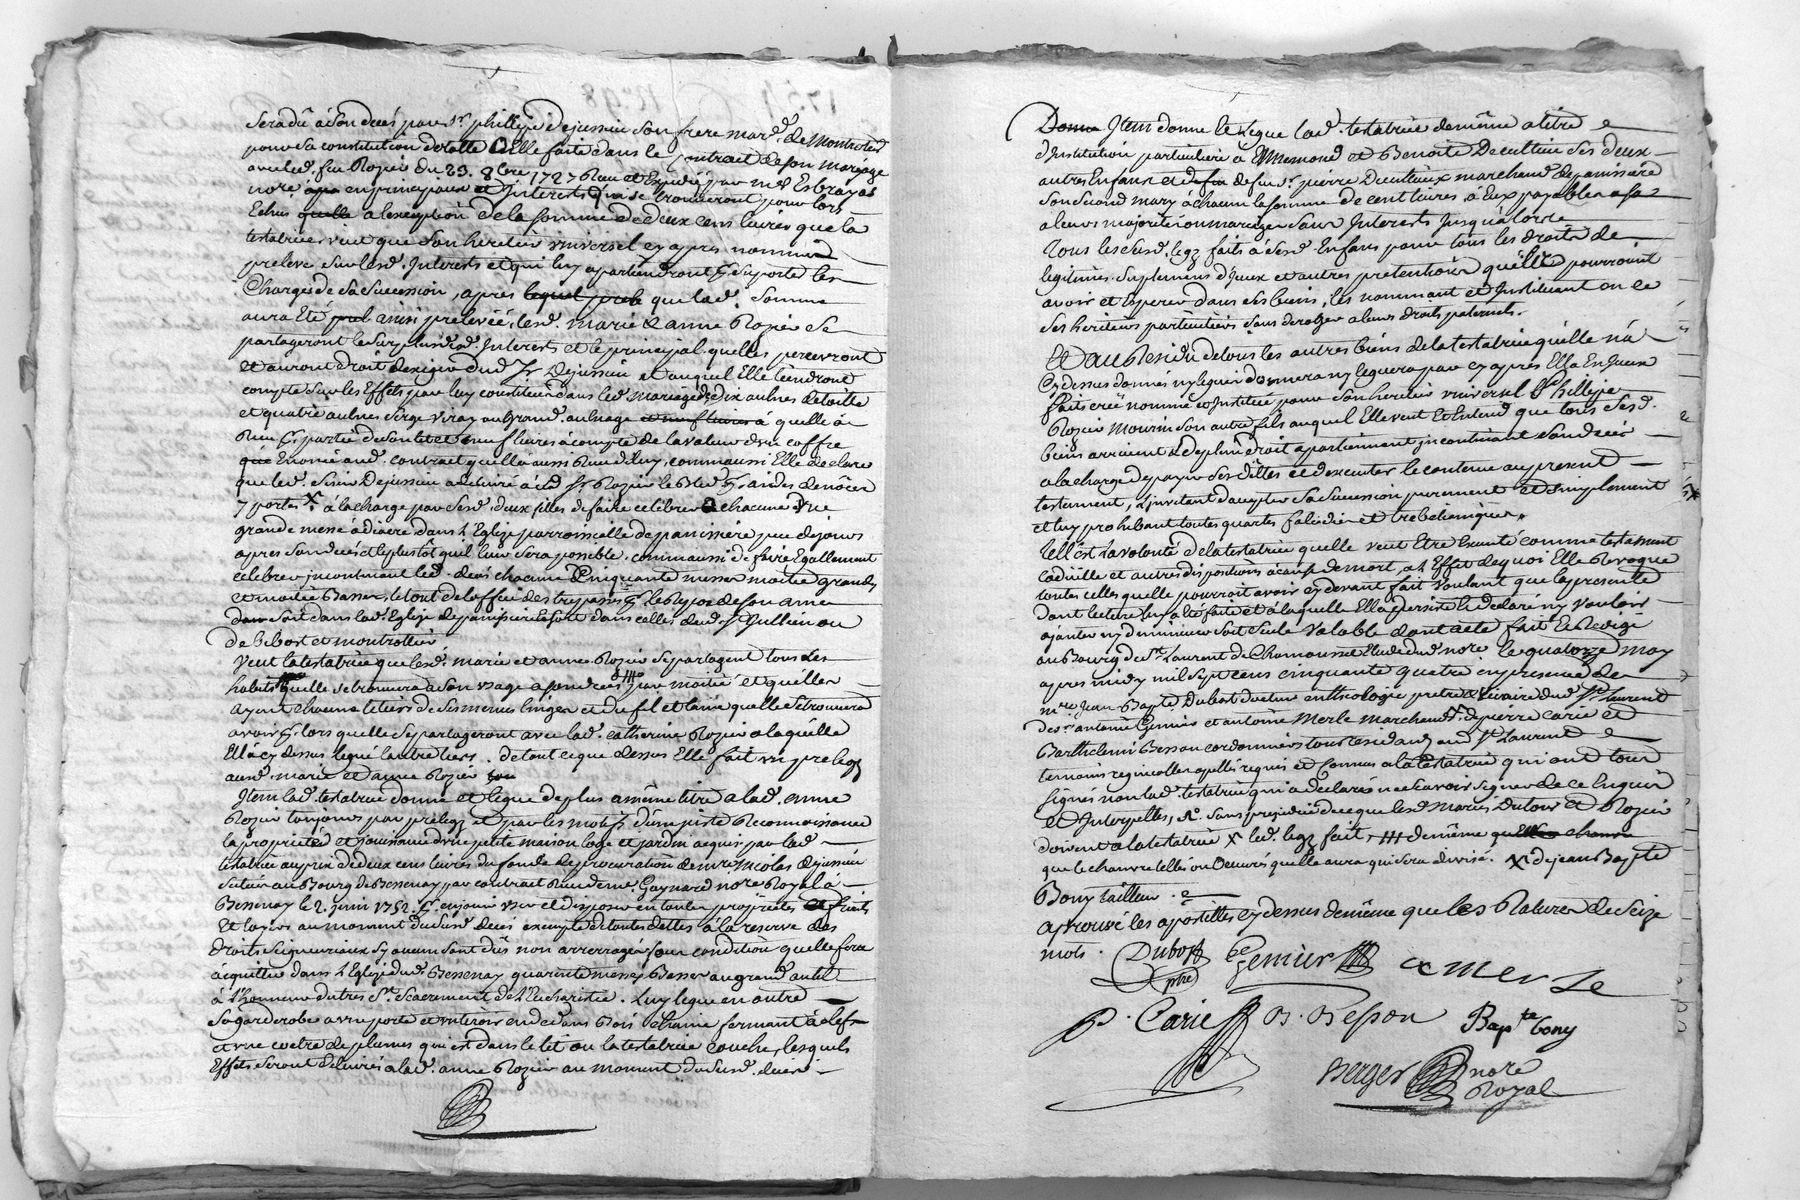 sera dû à son deces par sr. phillipe dejussieu son frere mard. de Montrotier
pour sa constitution dotalle à elle faite dans le contrat de son mariage
avec led. feu Rozier du 23. 8bre 1727 Reçu et Expedié par me Esbrayat
nore en principaux et Interests qui se trouveront pour lors
Echus a lexception de la somme de deux cens livres que la
testatrice veut que son heritier universel cy apres nommé
preleve sur lesd. Interests et qui luy apartiendront suporte les
Charges de sa succession, apres que lad. somme
aura Eté ainsi prelevée, lesd. marie & anne Rozier se
partageront le surplus desd. Interests et le principal quelles percevront
et auront droit dexiger dud sr Dejussieu et auquel Elle tiendront
compte sur les Effets par luy constitués dans led. mariage de dix aulnes de toille
et quatre aulnes serge Viray au Grand aulnage quelle a
Reçu partie de son lit et neuf livres à compte de la valeur d'un coffre
Enoncé aud. contract quella aussi Reçu de luy, comm aussi Elle declare
que led. sieur Dejussieu a delivré à ud sr Rozier le Bled
7 portes X à la charge par sesd. deux filles de faire celebrer chacune une
grande messe à diacre dans l'Eglise parroissielle de panissiere peu de jours
apres son deces et le plustôt quil leur sera possible. comm aussi de faire Egallement
celebrer incontinant led. deces chacune Cinquante messes moitié grandes
et moitié Basses, le tout de loffice des trepassés le Repos de son ame
soit dans lad. Eglise de panissiere soit dans celles dud. st Jullien ou
de Bibost et montrottier
Veut la testatrice que lesd. marie et anne Rozier se partagent tous les
habits quelle se trouvera à son usage a son deces par moitié et quelles
ayent chacune le tiers de ses menus linges et du fil et laine quelle se trouvera
avoir lors quelle se partageront avec lad. catherine Rozier a laquelle
Ell a cy dessus legué lautre tiers. de tout ce que dessus Elle fait un prelegs
ausd. marie et anne Rozier
Item lad. testatrice donne et legue de plus a même titre a lad. anne
Rozier toujours par prelegs et par les motifs d'une juste Reconnoissance
la proprieté et jouissance d'une petite maison loge et jardin acquis par lad
testatrice au prix de deux cens livres du fondé de procuration de mre Nicolas dejussieu
situés au Bourg de Bessenay par contract Reçu de me. Gaynard nore Royal à
Bessenay le 2. juin 1752. en jouir user et disposer en toutes proprietés fruits
et loyers au moment du susd. deces exempte de toutes dettes à la reserve des
droits seigneuriaux sy aucun sont dûs non arreragés sous condition quelle fera
acquitter dans l'Eglise dud. Bessenay quarante messes Basses au grand autel
à l'honneur du tres st. sacrement de l'Eucharistie. Luy legue en outre
sa garderobe a une porte et un tiroir en dedans Bois chaine fermant à clef
et une coetre de plumes qui est dans le lit ou la testatrice couche, lesquels
Effets seront delivrés a lad. anne Rozier au moment du susd. deces
Donne Item donne et Legue lad. testatrice de même a titre
d'Institution particuliere à Ennemond et Benoite Decultieu ses deux
autres Enfans et de feu sr. pierre Decultieux marchand de panissiere
son second mary a chacun la somme de cent livres, à Eux payables a sa
a leurs majorité ou mariage sans Interests jusqu'à lors
Tous lesd. legs faits à sesd. Enfans pour tous les droits de
legitimes suplement d'yceux et autres pretentions quelles pourroient
avoir et Esperer dans ses biens, les nommant et Instituant en ce
ses heritiers particuliers sans deroger a leurs droits paternels.
Et au Residu de tous les autres biens de la testatrice quelle n'a
Cy dessus donné ny legué donnera ny leguera par cy apres Ella En Yceux
fait créé nommé et Institué pour son heritier universel Phillipe
Rozier Mourin son autre fils auquel Elle veut et Entend que tous sesd.
biens arrivent de plein droit apartiennent incontinant son deces
a la charge de payer ses dettes et dexecuter le contenu au present
testament, L'invitant daccepter sa succession purement et simplement
et luy prohibant toutes quartes falcidie et trebellianique.
Tell'est la volonté de la testatrice quelle veut Etre Executé comme testament
Codicille et autres dispositions à cause de mort, à l'Effet de quoi Elle Revoque
toutes celles quelle pourroit avoir cy devant fait voulant que la presente
dont lecture luy a été faite et à laquelle Ella persisté et declaré ny vouloir
ajouter ny diminuer soit seule valable dont acte fait et Redigé
au Bourg de st. Laurent de Chamousset Etude dud nore le quatorze may
apres midy mil sept cens cinquante quatre en presence de
mre Jean-Bapte Dubost docteur en theologie pretre et vicaire dud st. Laurent
des srs. antoine Gemier et antoine Merle marchands, de pierre Carie et
Barthelemi Besson cordonniers tous residans aud st. Laurent
temoins requis et connus a la testatrice qui ont tous
signés non lad. testatrice qui a declaré ne le savoir signer de ce Enquise
et Interpellée, sans prejudice de ce que lesd Maries Dutour et Rozier
doivent a la testatrice X led. legs fait, //// de même chanvre
que le chanvre telles ou Oeuvrés quelle aura qui sera divisé. X de jean Bapte
Bony tailleur.
aprouvé les apostilles cy dessus de même que les Ratures de seize
mots. Dubost
ptre Gemier A Merle
P. Carie B. Besson Bapte bony
Berger nore
Royal